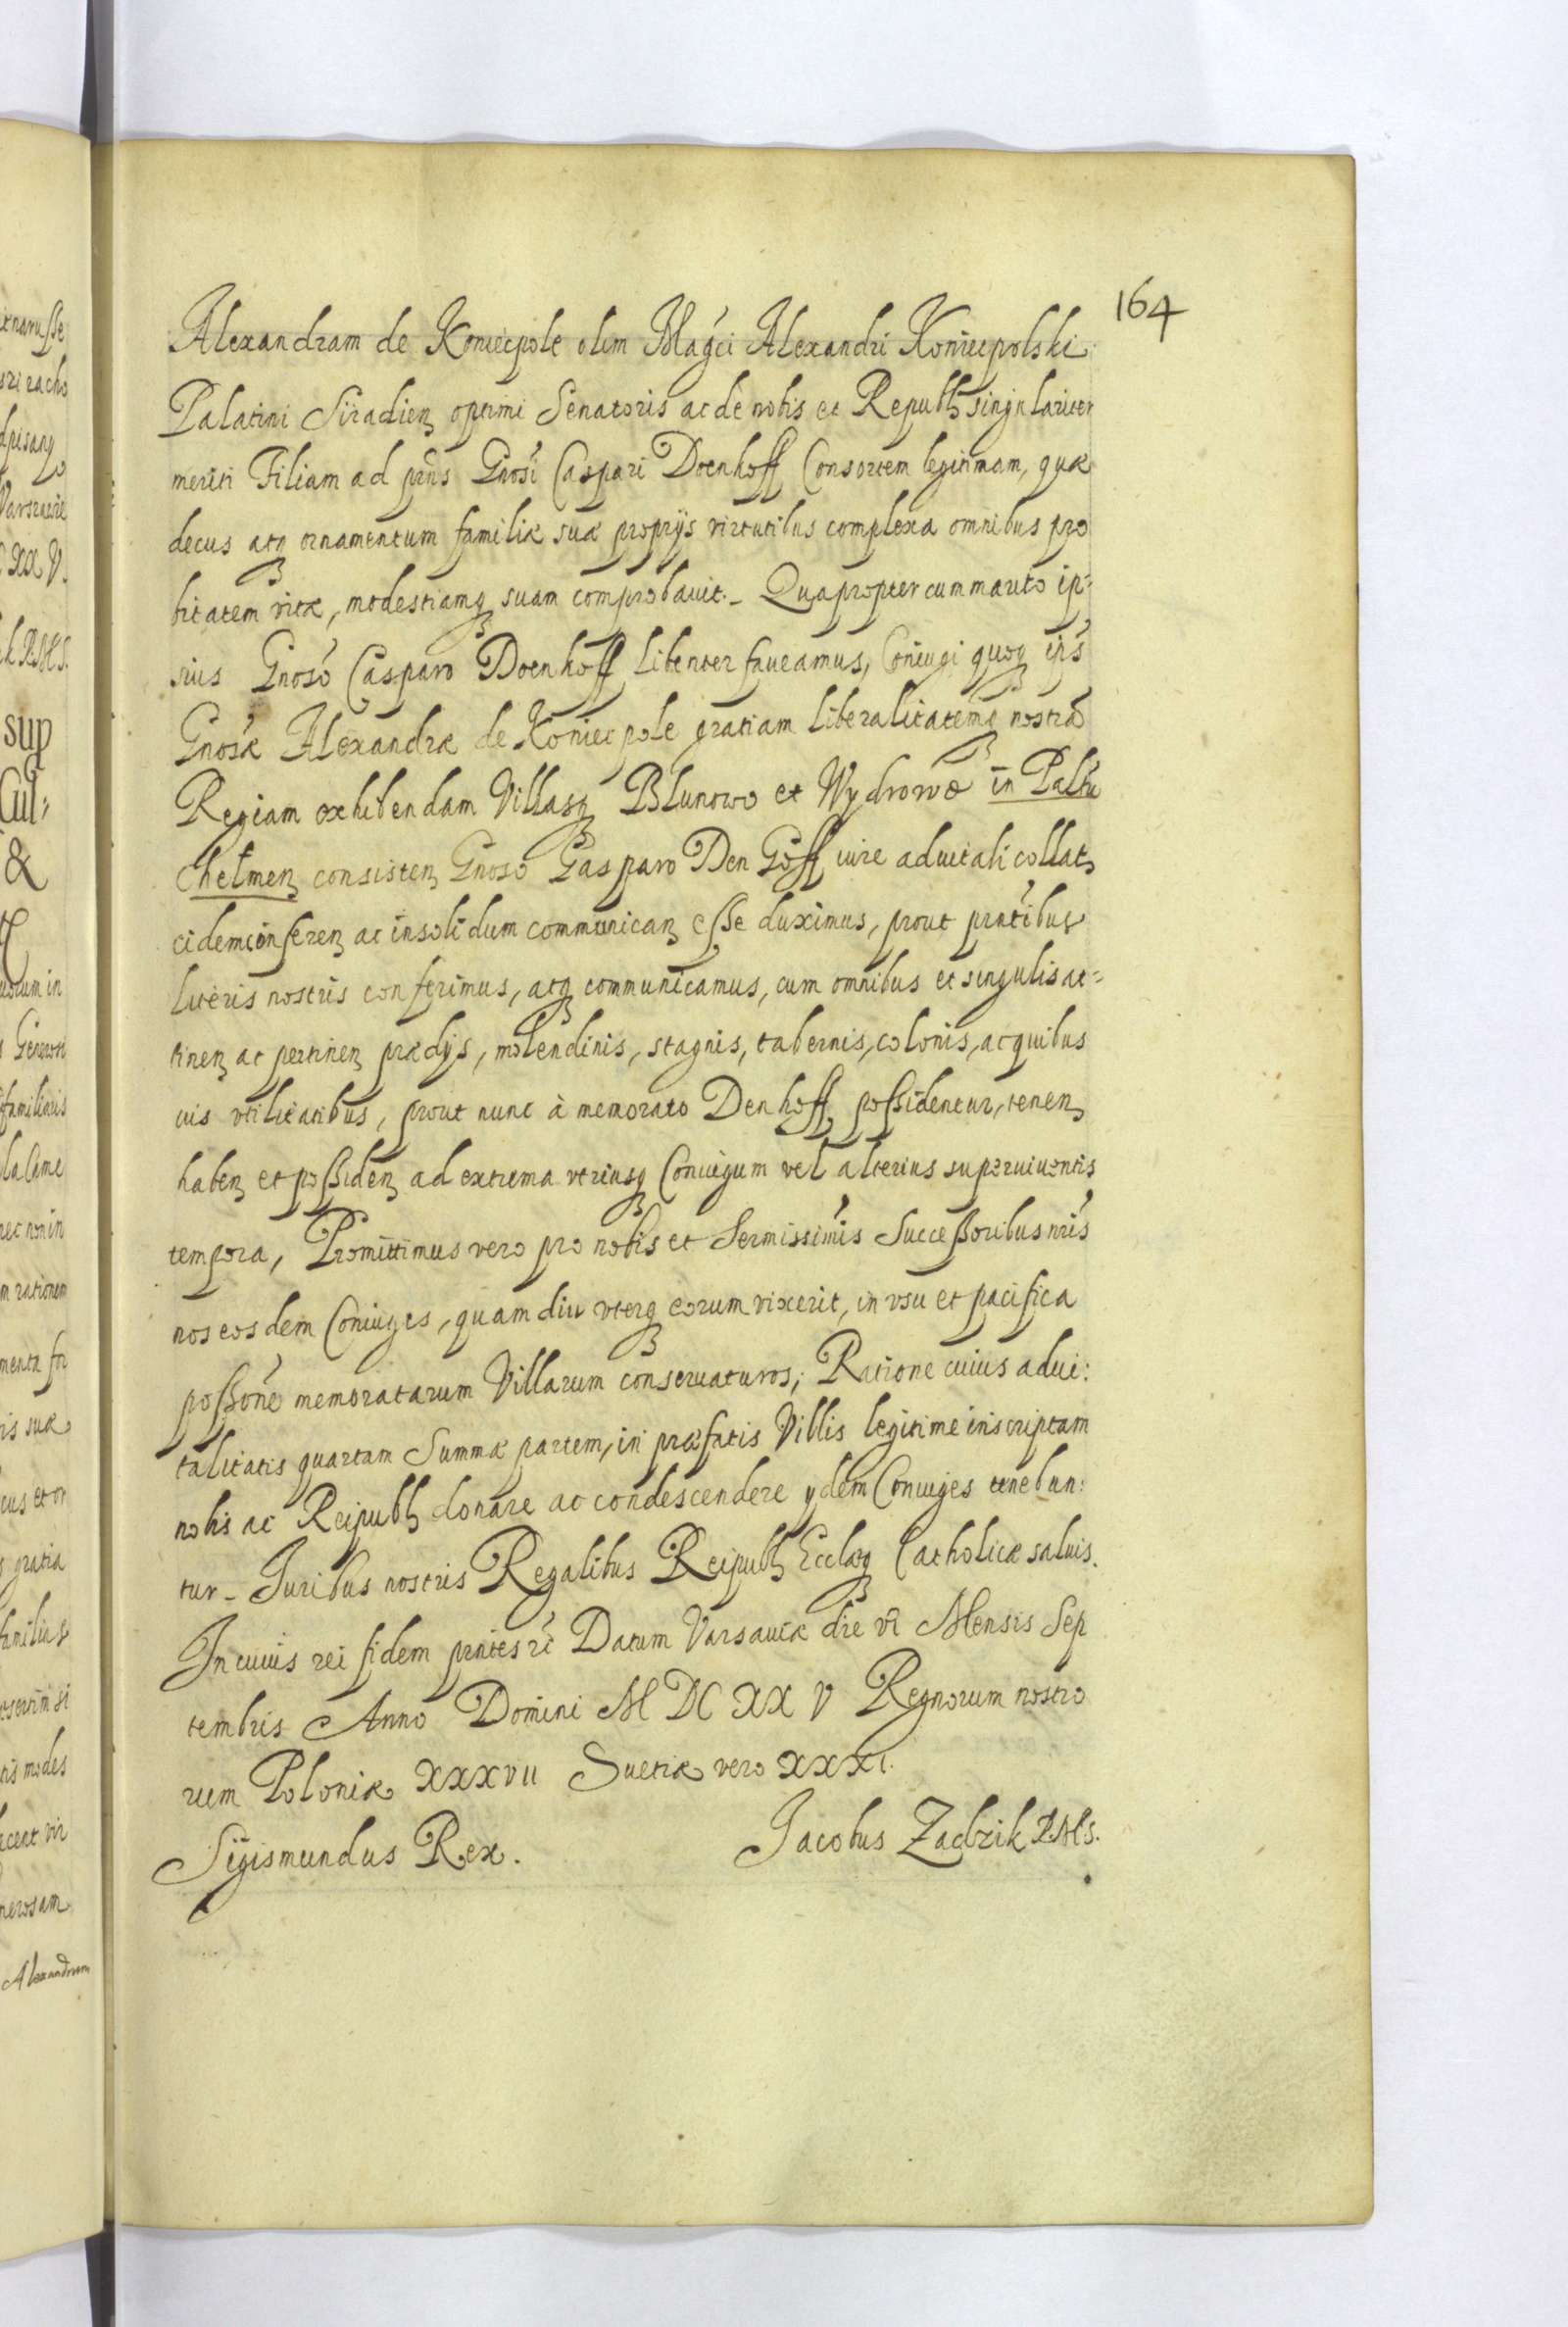 164
Alexandram de Koniecpole olim Magci Alexandri Koniecpolski
Palatini Siradien optimi Senatoris ac de nobis et Republ singulariter
meriti Filiam ad pns Gnosi Caspari Doenhoff Consortem legitimam, quæ
decus atq ornamentum familiæ suæ proprijs virtutibus complexa omnibus pro
bitatem vitæ, modestiamq suam comprobavit._ Quapropter cum marito ip=
sius Gnoso Casparo Doenhoff libenter faveamus, Coniugi quoq ips
Gnosæ Alexandræ de Koniecpole gratiam liberalitatemq nostrã
Regiam exhibendam Villasq Blunowo et Wydrowo in Paltu
Chelmen consisten Gnoso Gasparo Den Goff iure advitali collat
eidem conferen ac insolidum communican esse duximus, prout pntibus
literis nostris conferimus, atq communicamus, cum omnibus et singulis at=
tinen ac pertinen prædijs, molendinis, stagnis, tabernis, colonis, ac quibus
vis vtilitatibus, prout nunc à memorato Denhoff possidentur, tenen
haben et possiden ad extrema vtriusq Coniugum vel alterius superviventis
tempora, Promittimus vero pro nobis et Sermissimis Successoribus nris
nos eosdem Coniuges, quam diu vterq eorum vixerit, in vsu et pacifica
possone memoratarum Villarum conservaturos; Ratione cuius advi:
talitatis quartam Summæ partem, in præfatis Villis legitime inscriptam
nobis ac Reipubl donare ac condescendere ydem Coniuges tenebun:
tur_ Iuribus nostris Regalibus Reipubl Ecclæq Catholicæ salvis.
In cuius rei fidem pntes rc Datum Varsaviæ die VI Mensis Sep
tembris Anno Domini M DC XX V Regnorum nostro
rum Poloniæ XXXVII Suetiæ vero XXXI.
Sigismundus Rex. Jacobus Zadzik R.M.S.
sup
Cul=
&
Alexandram